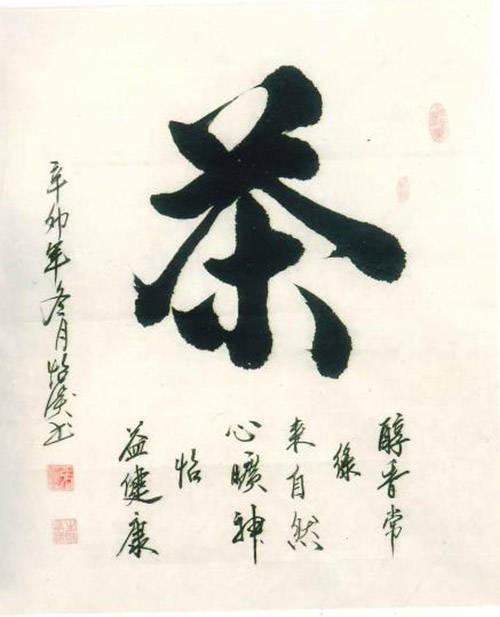 茶
醇香常
緣
来自然
心曠神
怡
益健康
辛卯年冬月怡书